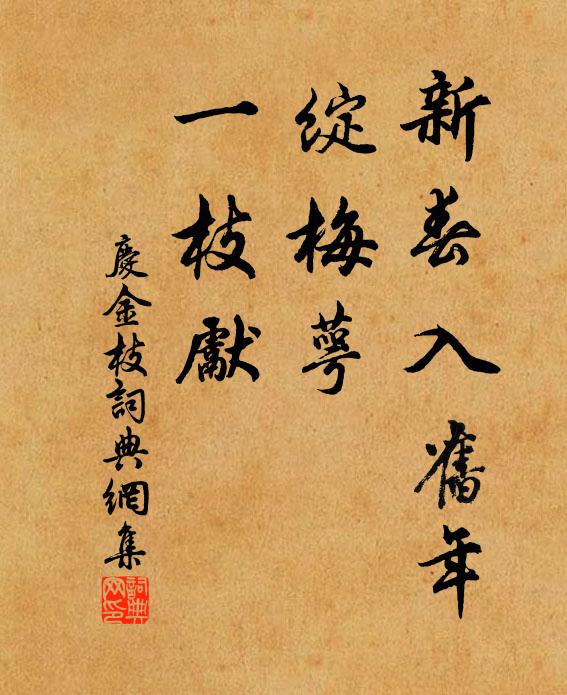 新春入舊年
綻梅萼
一枝獻
慶金枝詞典網集
詞典网印